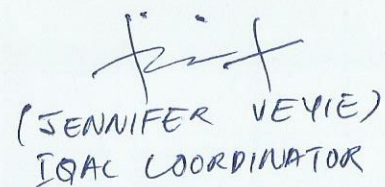 (JENNIFER VEYIE)
IQAC COORDINATOR